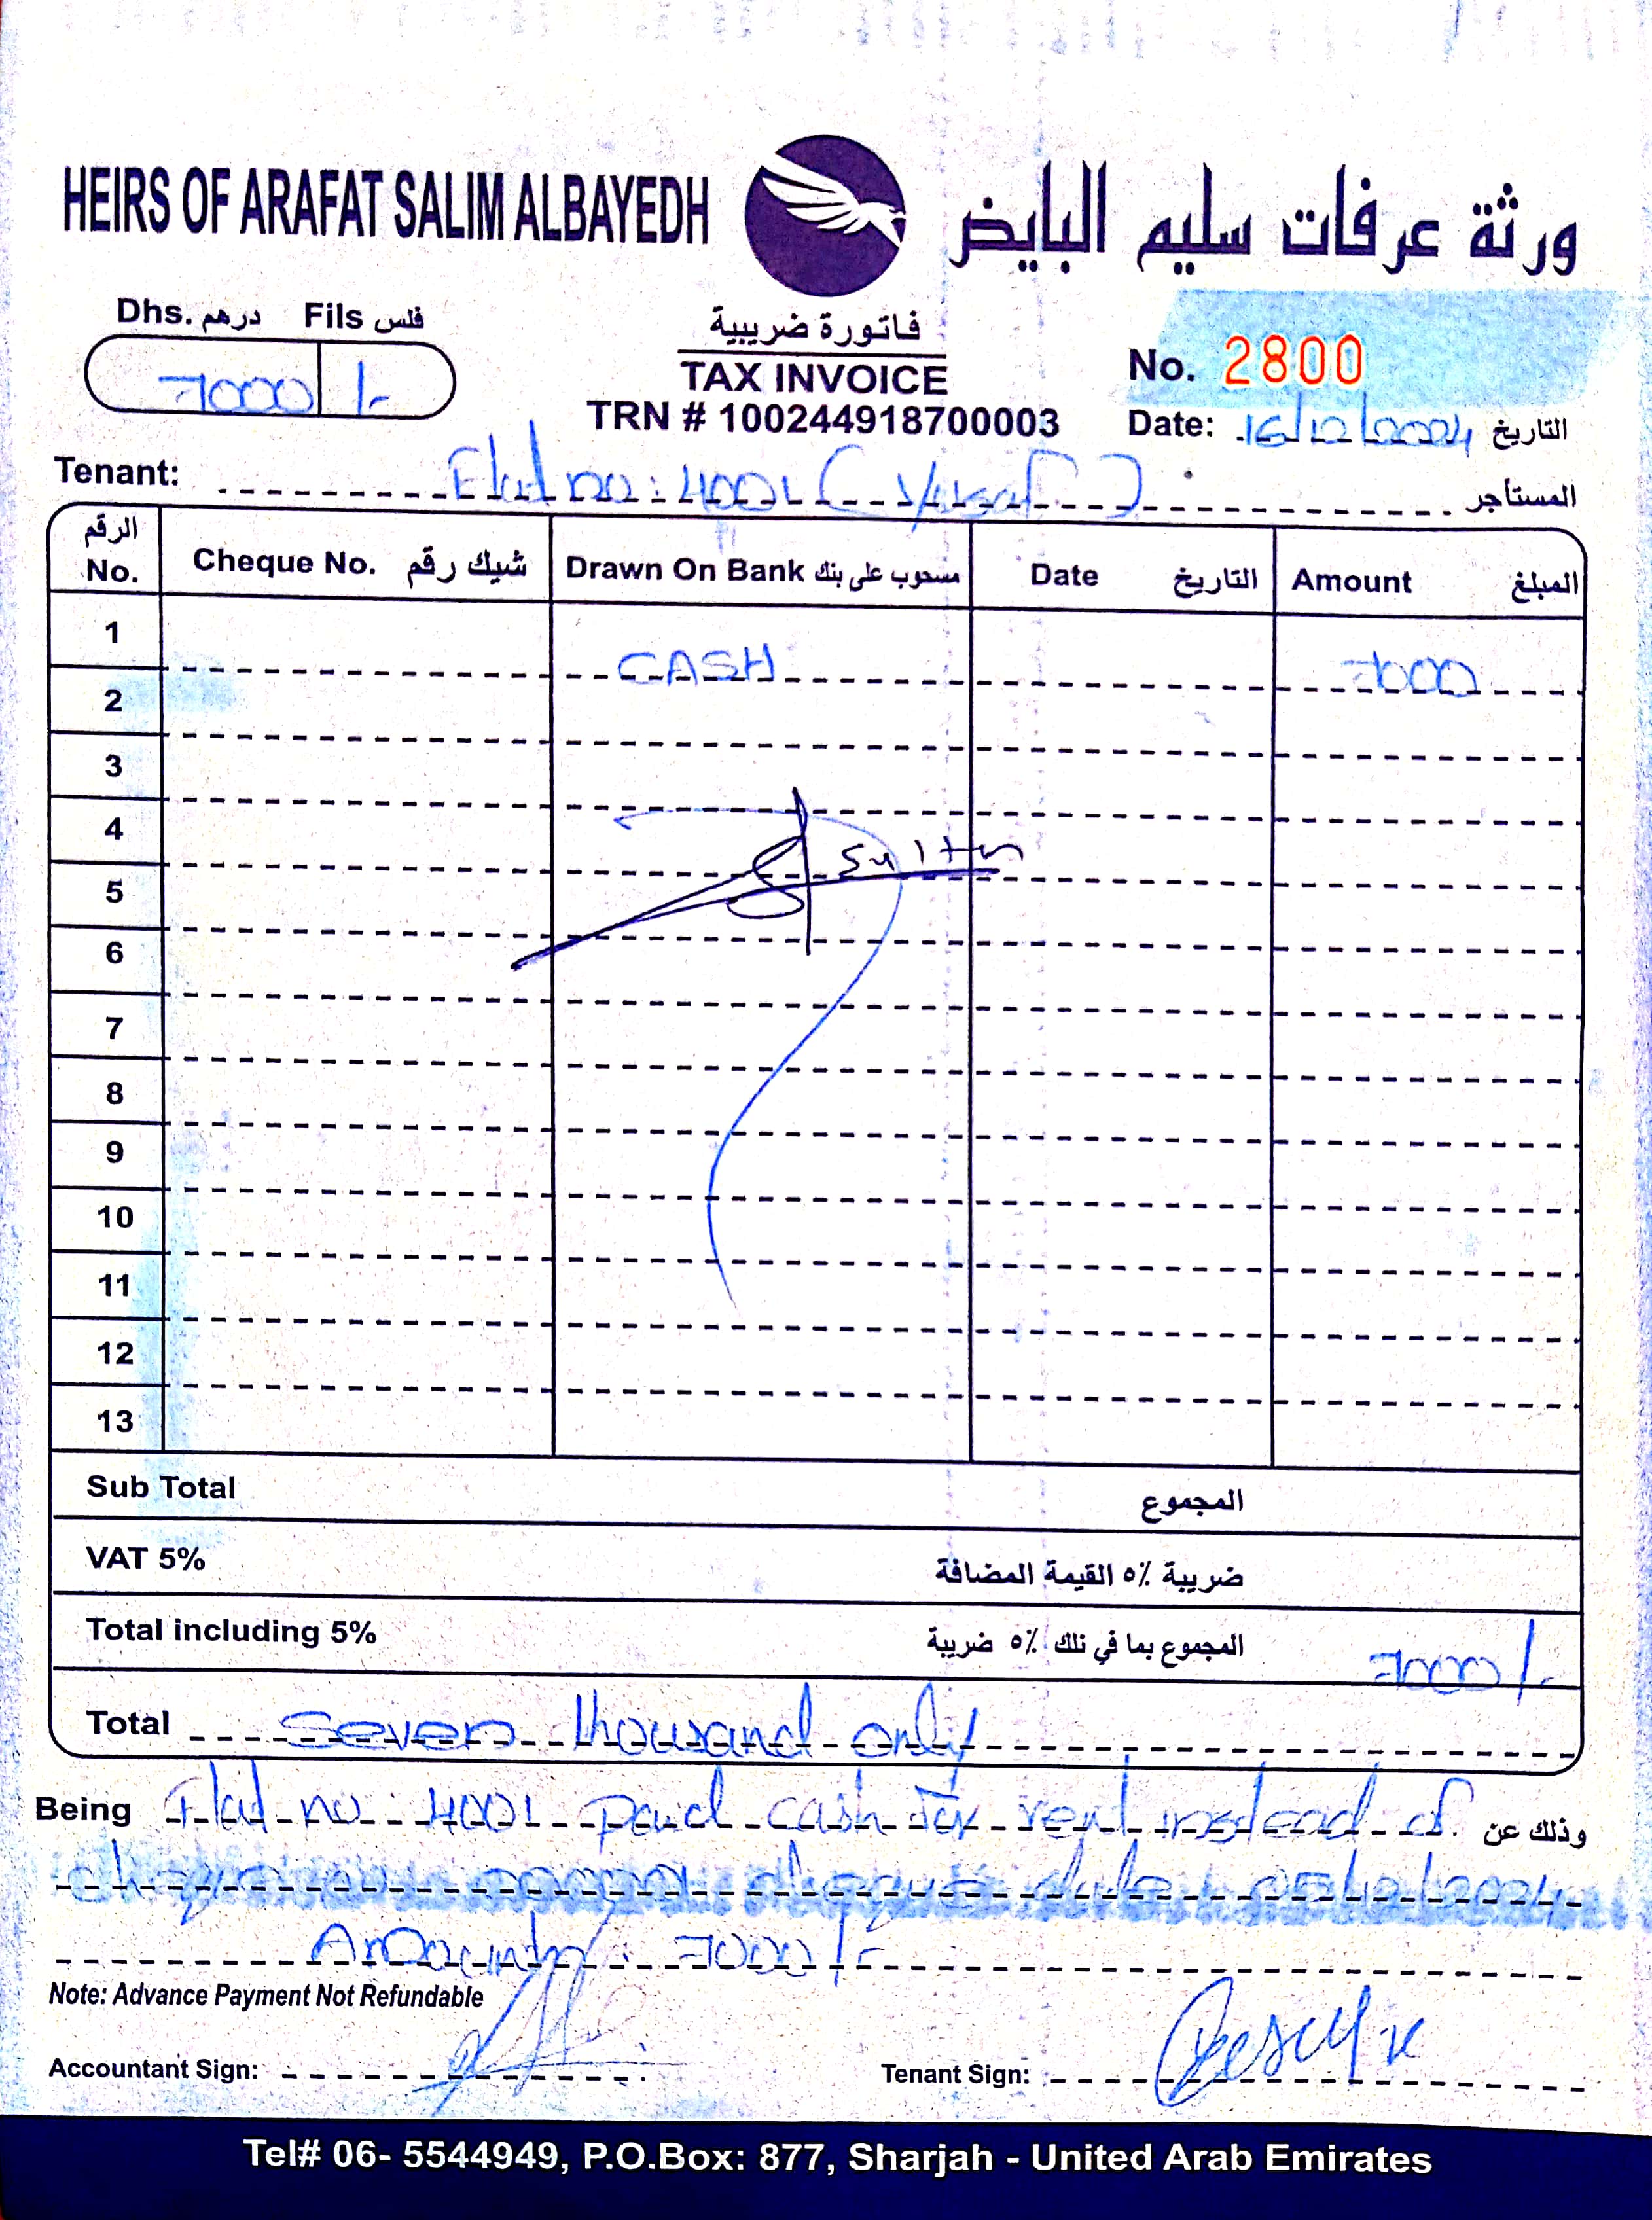 HEIRS OF ARAFAT SALIM ALBAYEDH ورثة عرفات سليم البايض
Dhs. درهم Fils فلس
7000 /-
فاتورة ضريبية
TAX INVOICE
TRN # 100244918700003
No. 2800
Date: 16/12/2024 التاريخ
Tenant: Flat no: 4001 المستأجر
الرقم No. Cheque No. شيك رقم Drawn On Bank مسحوب على بنك Date التاريخ Amount المبلغ
1 CASH 7000
2
3
4
Sultan
5
6
7
8
9
10
11
12
13
Sub Total المجموع
VAT 5% ضريبة ٥٪ القيمة المضافة
Total including 5% المجموع بما في ذلك ٥٪ ضريبة 7000/-
Total Seven thousand only
Being Flat no: 4001 paid cash for rent instead of وذلك عن
cheque date: 05/12/2024
Amount: 7000/-
Note: Advance Payment Not Refundable
Accountant Sign: Tenant Sign:
Tel# 06- 5544949, P.O.Box: 877, Sharjah - United Arab Emirates